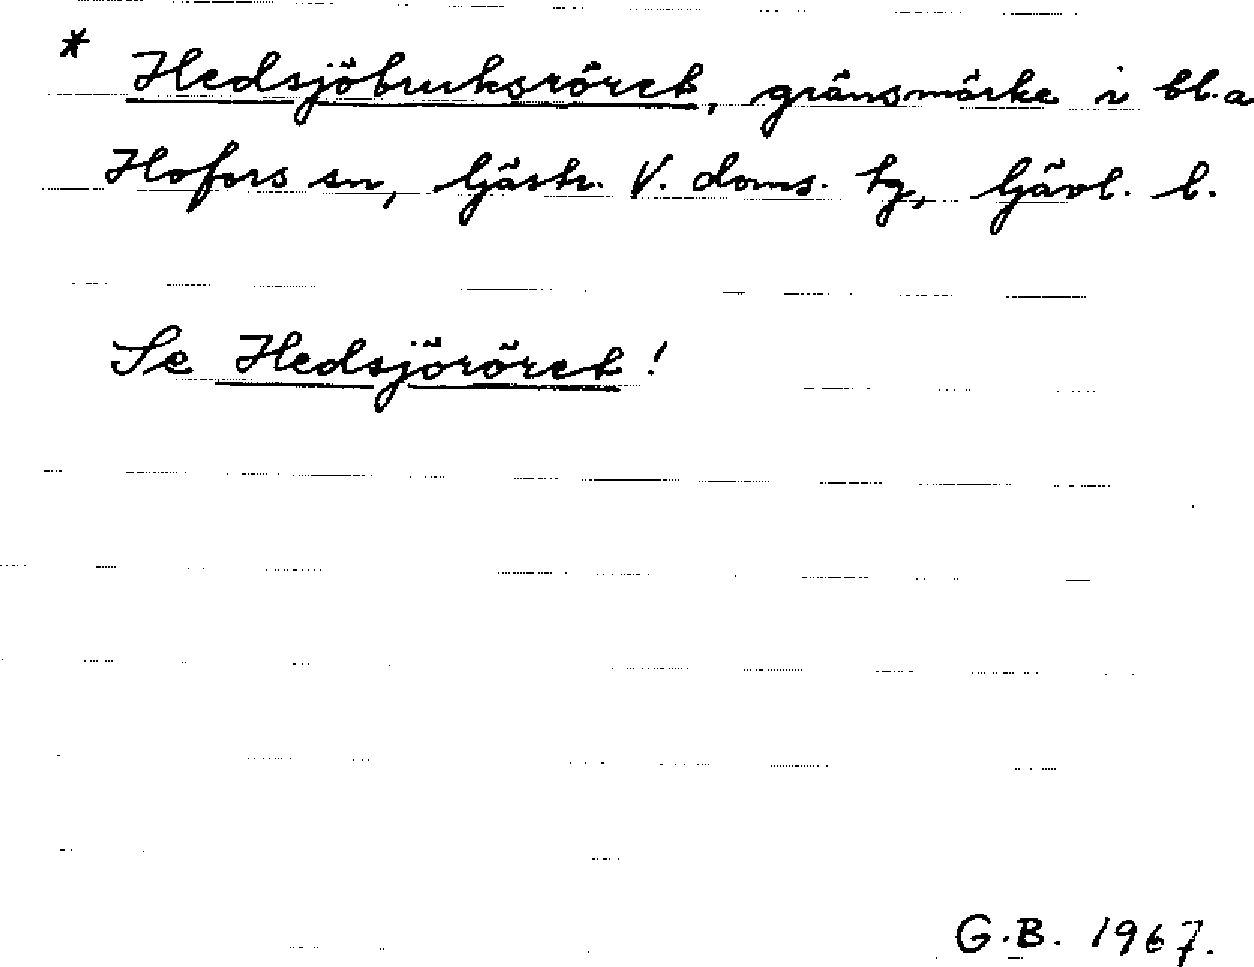 * Hedsjöbruksröret, gränsmärke i bl.a
Hofors sn, Gästr. V. doms. tg, Gävl. l.
Se Hedsjöröret!
G.B. 1967.